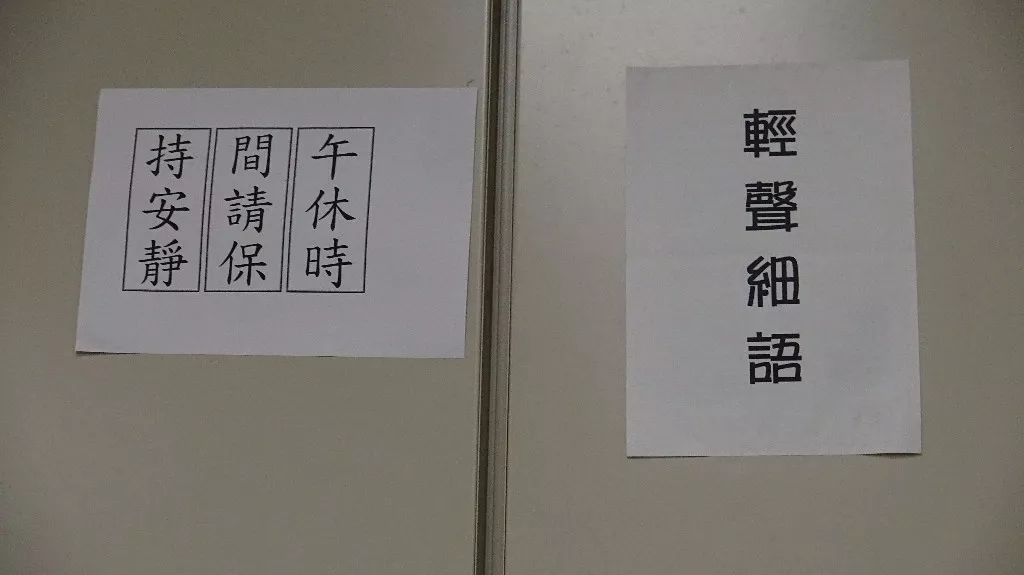 午休時
間請保
持安靜
輕聲細語